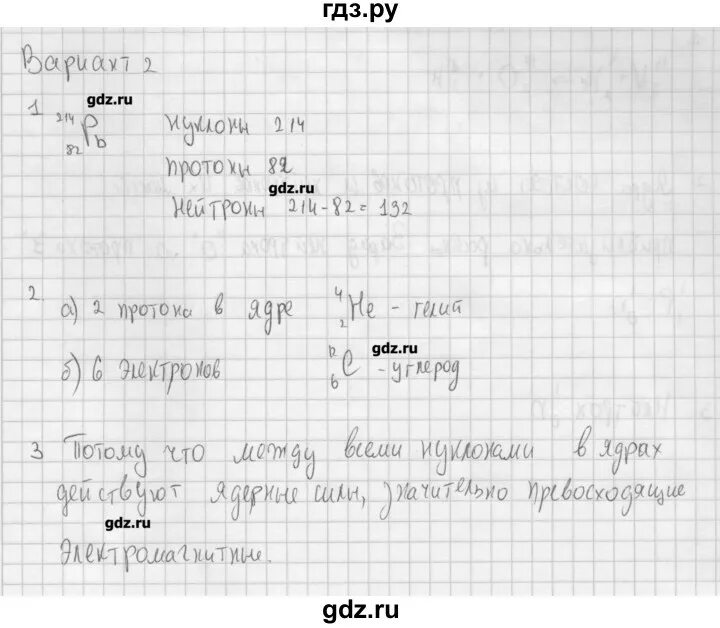 гдз.ру
Вариант 2
gdz.ru
1 ²¹⁴₈₂Pb нуклоны 214
протоны 82
gdz.ru
нейтроны 214-82 = 132
2. а) 2 протона в ядре ⁴₂He - гелий
gdz.ru
б) 6 электронов ¹²₆C - углерод
3 Потому что между всеми нуклонами в ядрах
действуют ядерные силы, значительно превосходящие
gdz.ru
электромагнитные.
gdz.ru